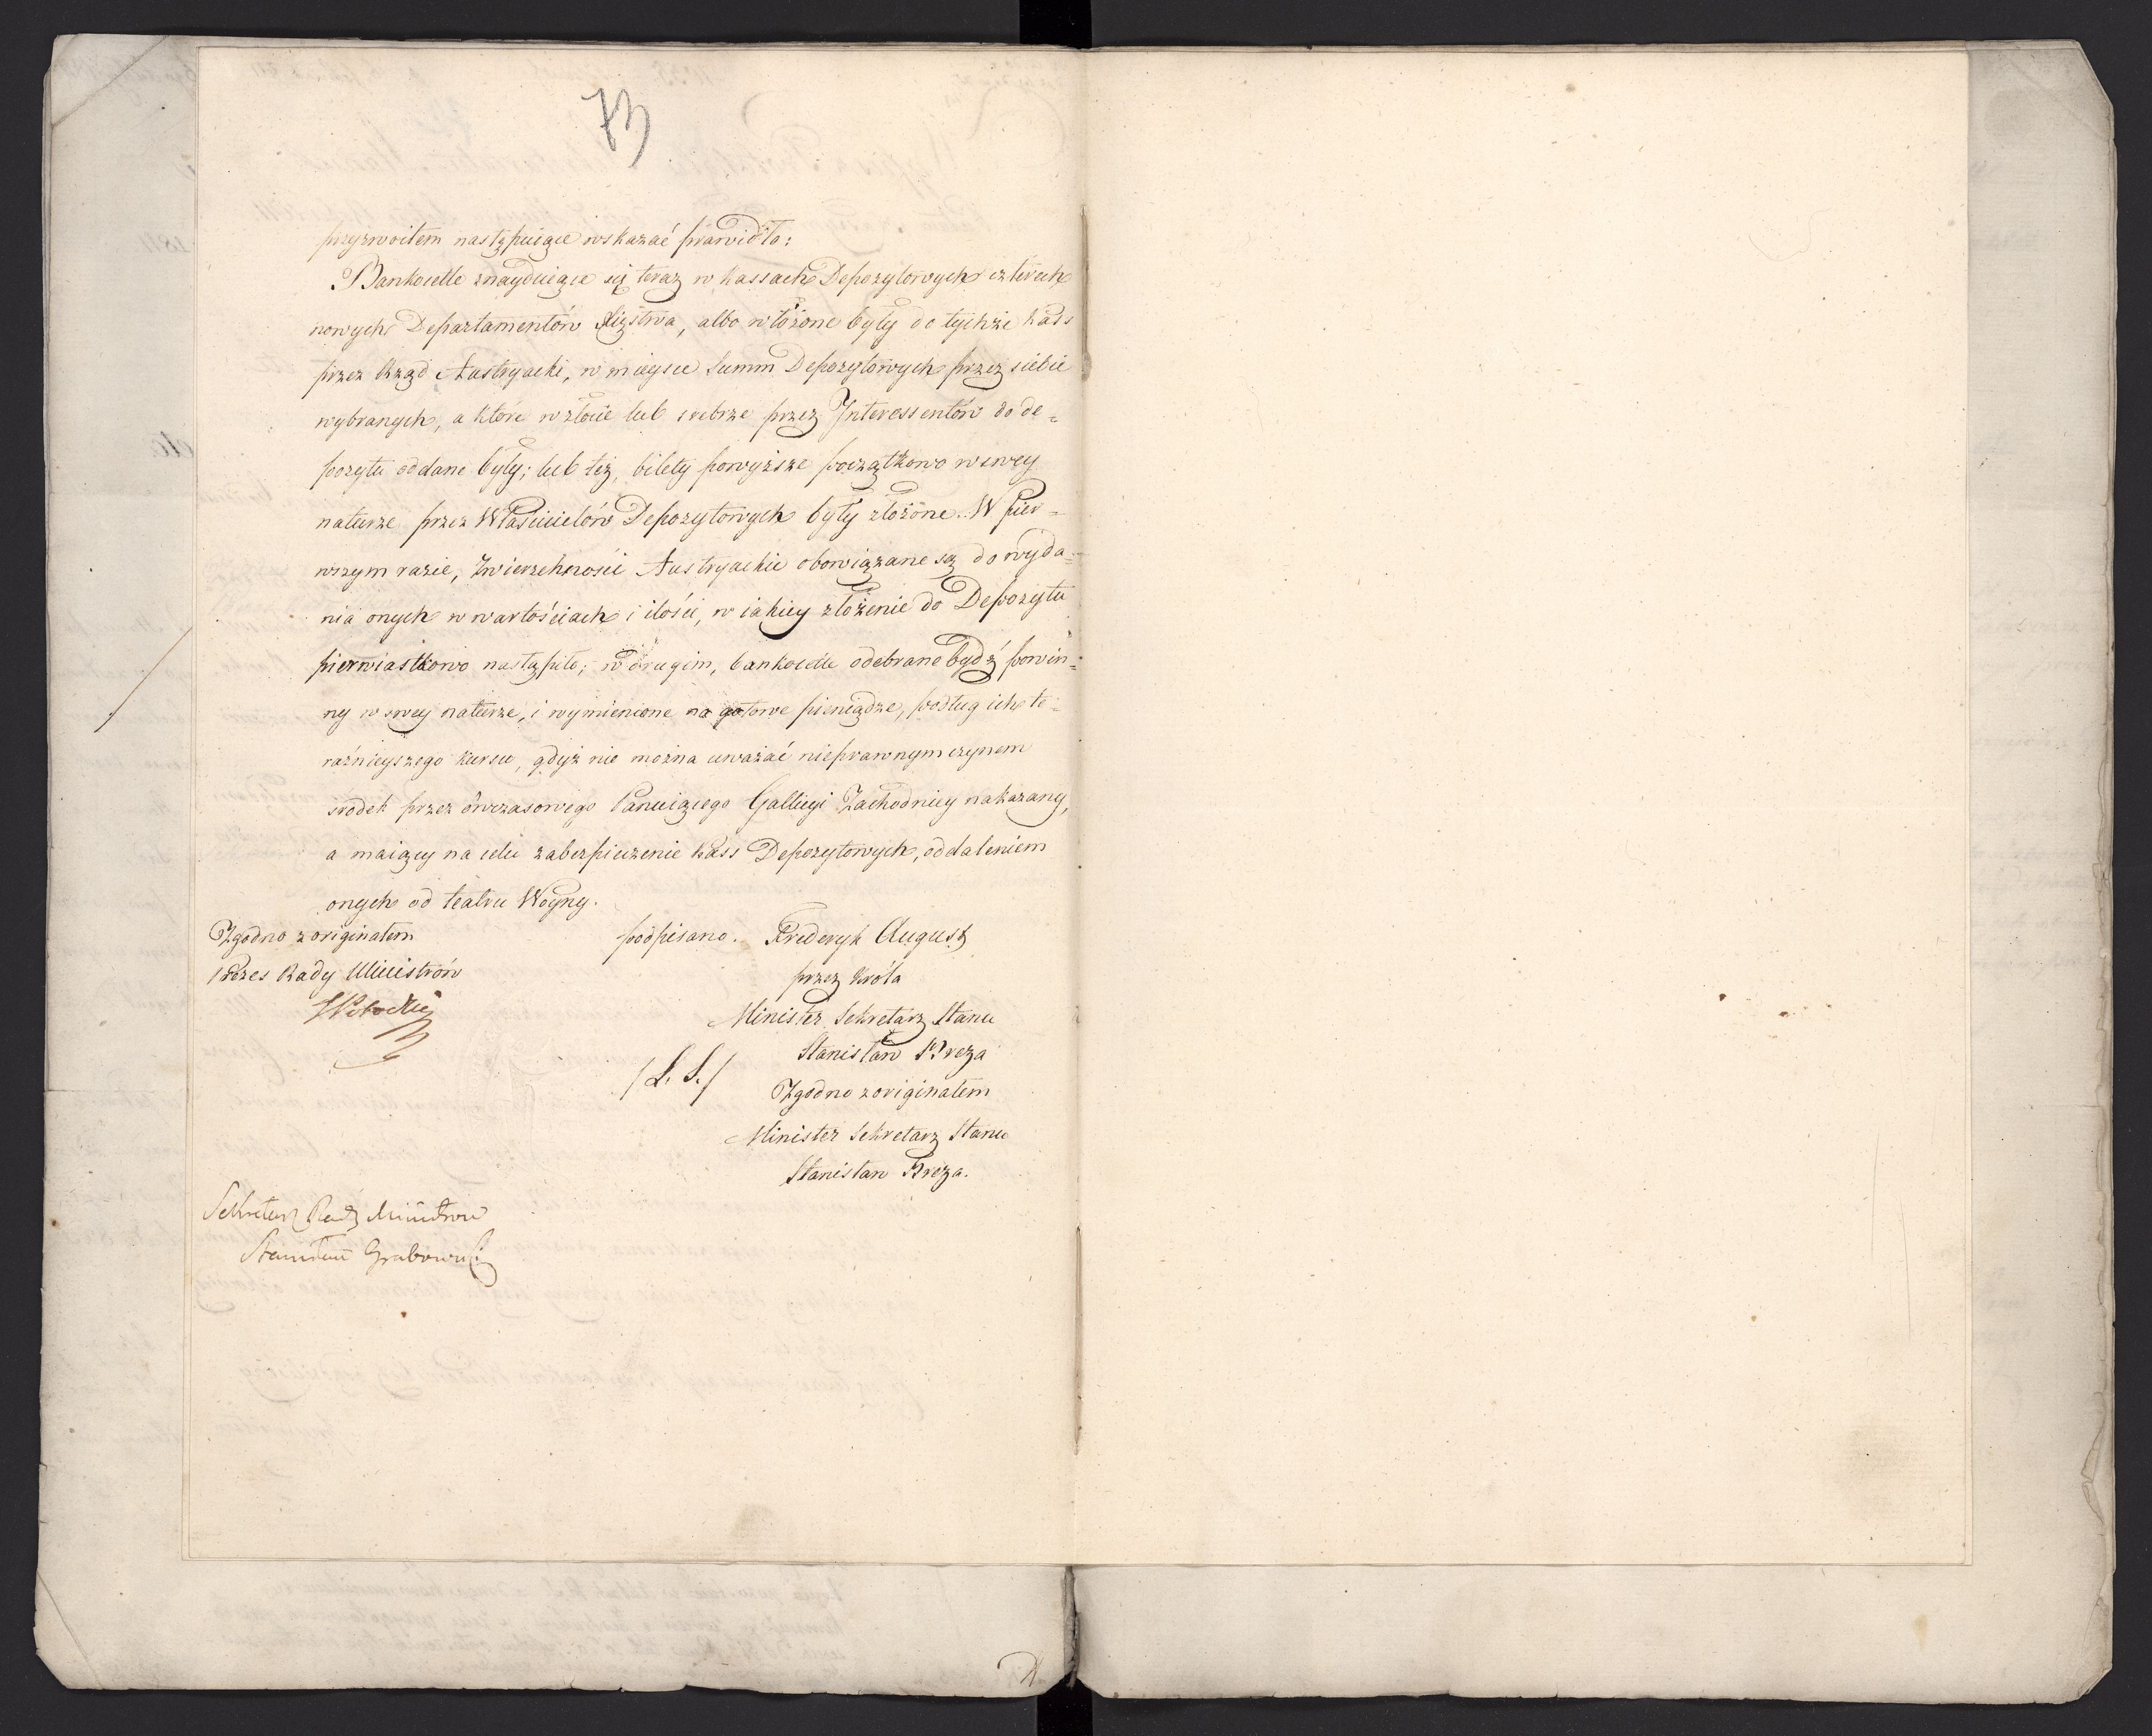 73
przyzwoitem następuiące wskazać prawidło:
Bankocetle znayduiące się teraz w Kassach Depozytowych czterech
nowych Departamentów Xięstwa, albo włożone były do tychże kass
przez Rząd Austryacki, w mieysce Summ Depozytowych przez siebie
wybranych, a które w złocie lub srebrze przez Interessentów do de=
pozytu oddane były; lub też, bilety powyższe początkowo w swey
naturze przez Właścicielów Depozytowych były złożone. W pier=
wszym razie, Zwierzchności Austryackie obowiązane są do wyda=
nia onych w wartościach i ilości, w iakiey złożenie do Depozytu
pierwiastkowo nastąpiło; w drugim, bankocetle odebrane bydź powin=
ny w swey naturze, i wymienione na gotowe pieniądze, podług ich te=
raźnieyszego kursu, gdyż nie można uważać nieprawnym czynem
srodek przez ówczasowego Panuiącego Gallicyi Zachodniey nakazany,
a maiący na celu zabezpieczenie kass Depozytowych, oddaleniem
onych od teatru Woyny.
Zgodno z originałem
Prezes Rady Ministrów
podpisano. Frederyk August
przez Króla
Minister Sekretarz Stanu
Stanisław Breza
/L. S./
Zgodno z originałem
Minister Sekretarz Stanu
Stanisław Breza.
Sekretarz Rady Ministrow
Stanisław Grabowski